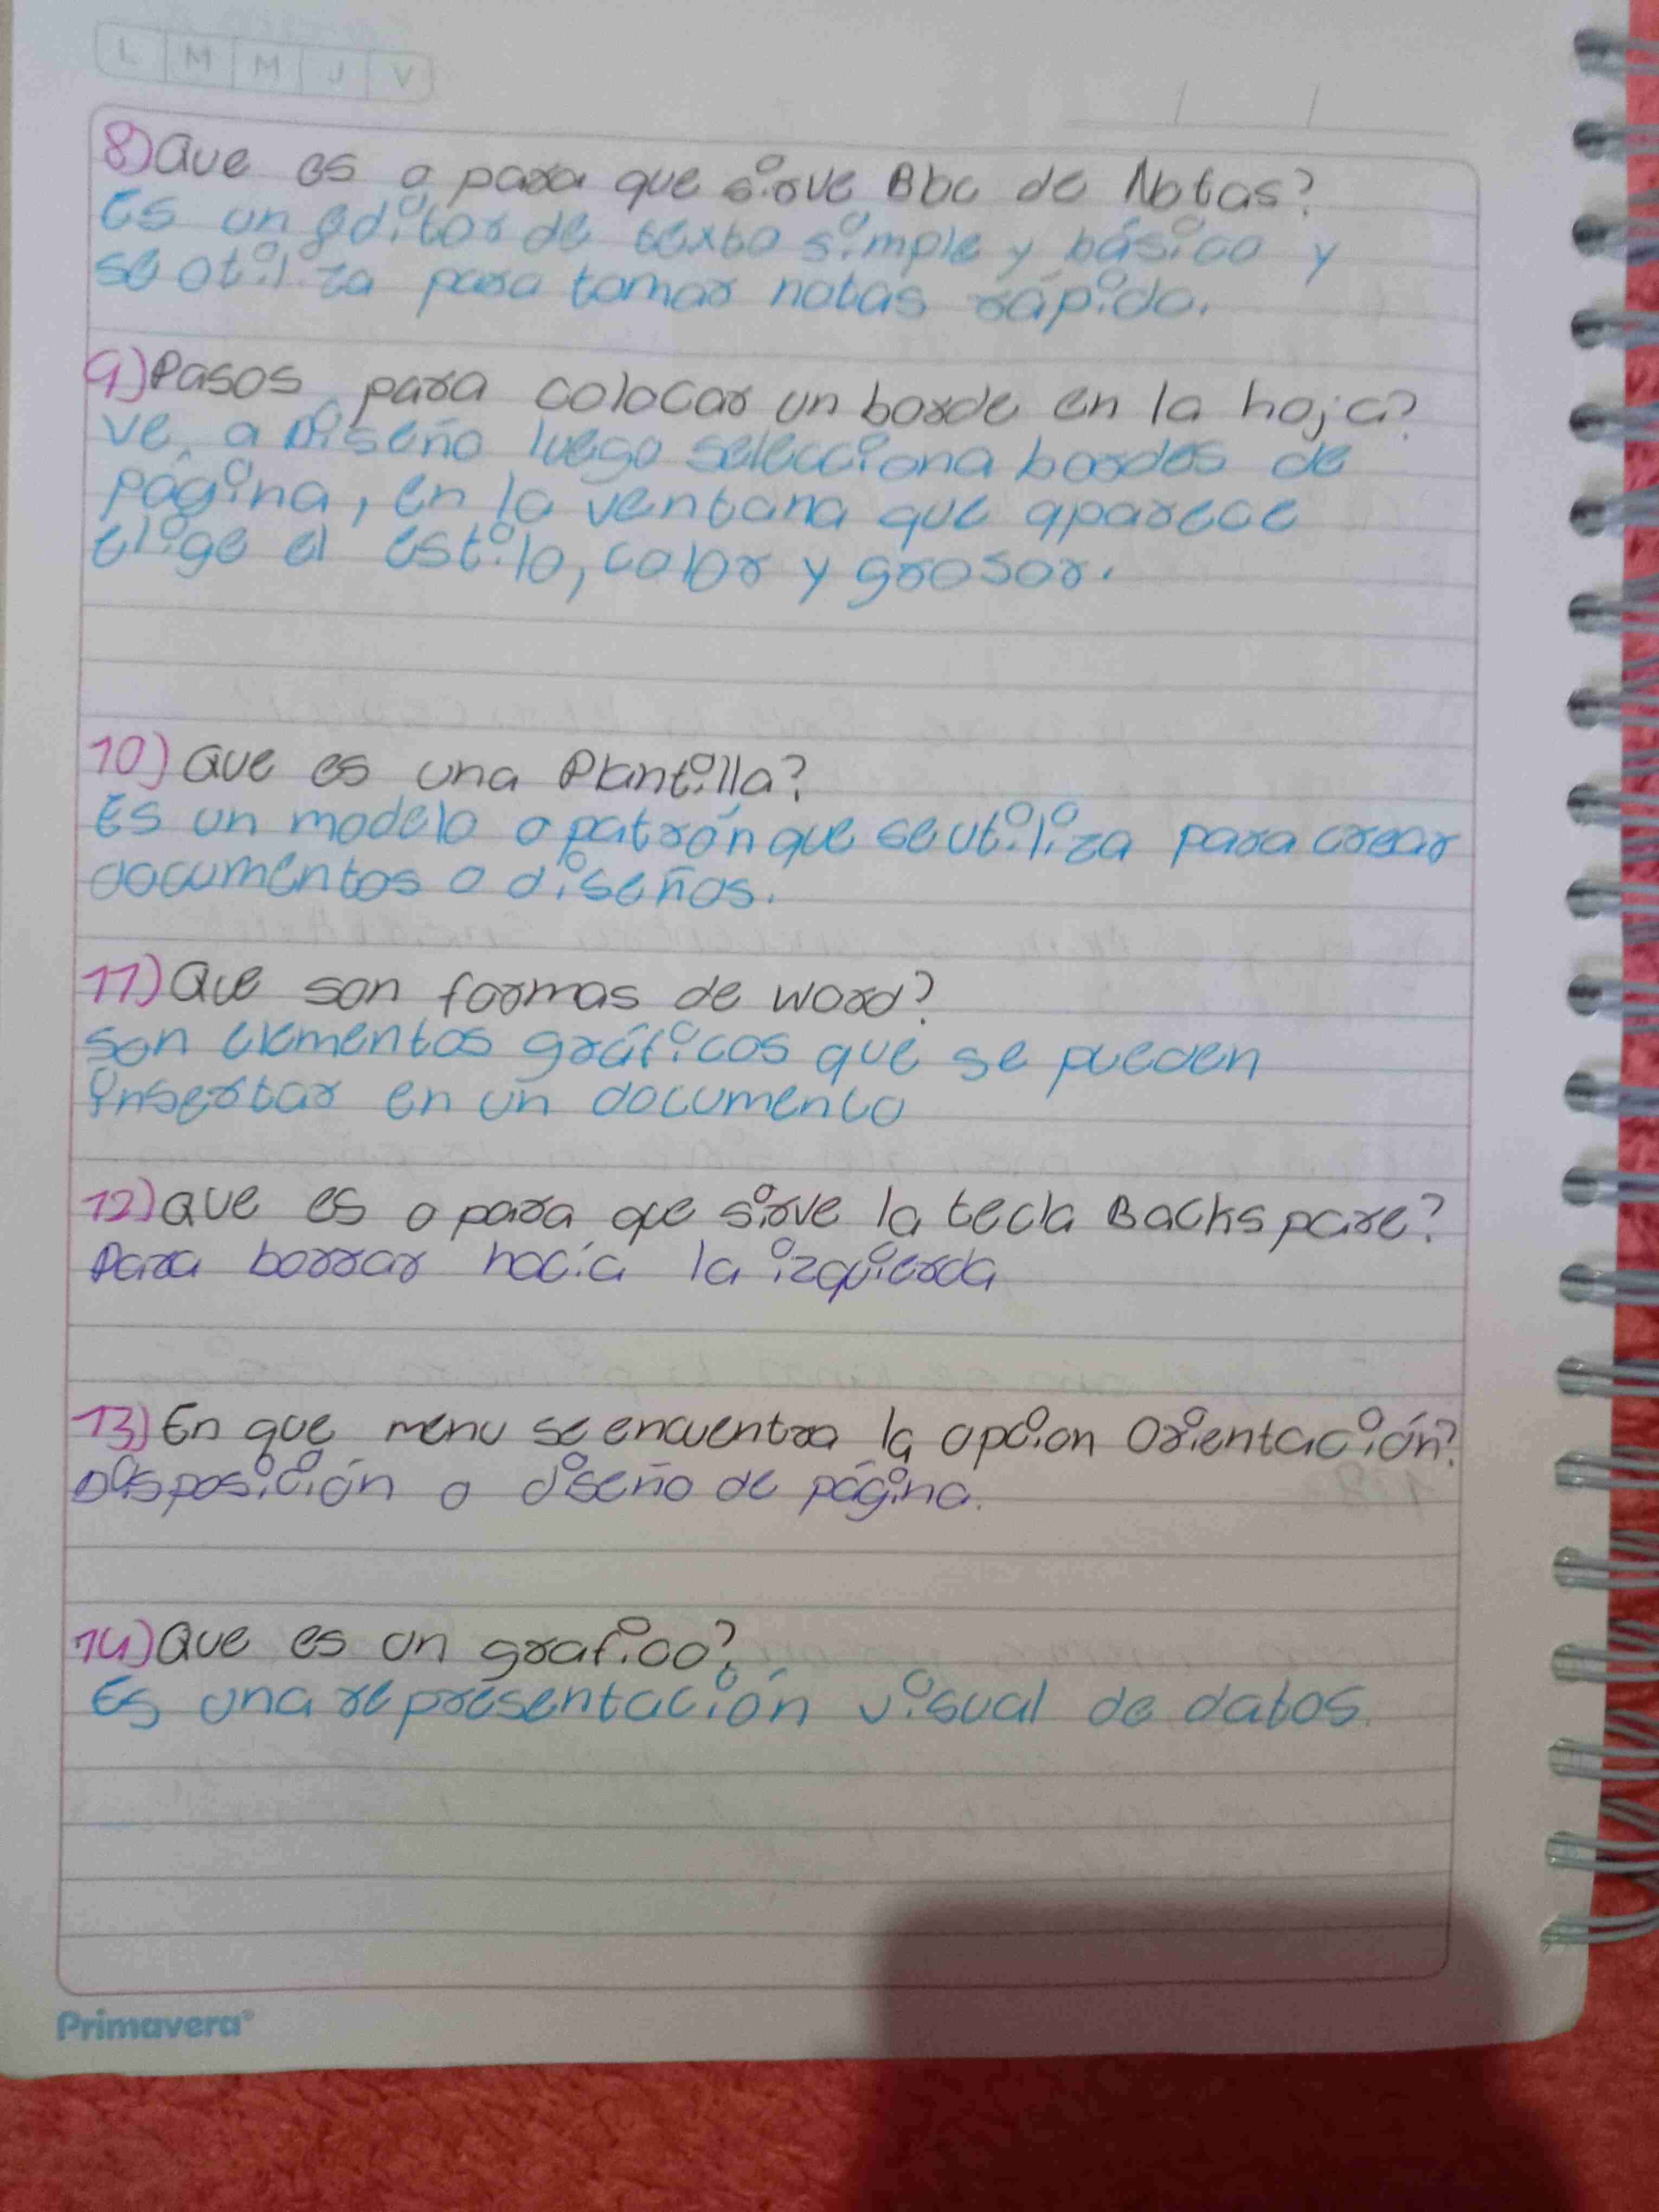 L M M J V
8) Que es o para que sirve Bloc de Notas?
Es un editor de texto simple y básico y
se utiliza para tomar notas rápido.
9) Pasos para colocar un borde en la hoja?
ve a Diseño luego selecciona bordes de
página, en la ventana que aparece
elige el estilo, color y grosor.
10) Que es una Plantilla?
Es un modelo o patrón que se utiliza para crear
documentos o diseños.
11) Que son formas de word?
Son elementos gráficos que se pueden
insertar en un documento
12) Que es o para que sirve la tecla Backspare?
Para borrar hacia la izquierda
13) En que menu se encuentra la opcion Orientación?
Disposición o diseño de página.
14) Que es un grafico?
Es una representación visual de datos.
Primavera